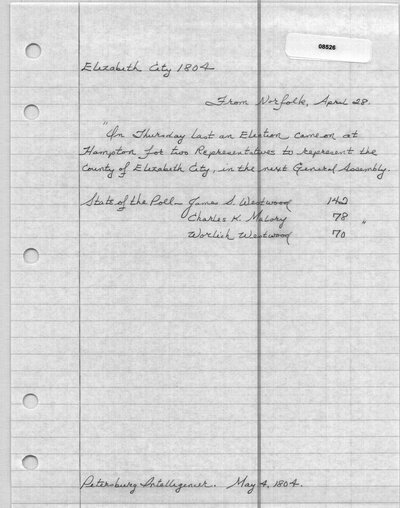 08526
Elizabeth City 1804
From Norfolk, April 28.
"On Thursday last an Election came on at
Hampton for two Representatives to represent the
County of Elizabeth City, in the next General Assembly.
State of the Poll — James S. Westwood 142
Charles K. Mallory 78 "
Worlich Westwood 70
Petersburg Intelligencer. May 4, 1804.